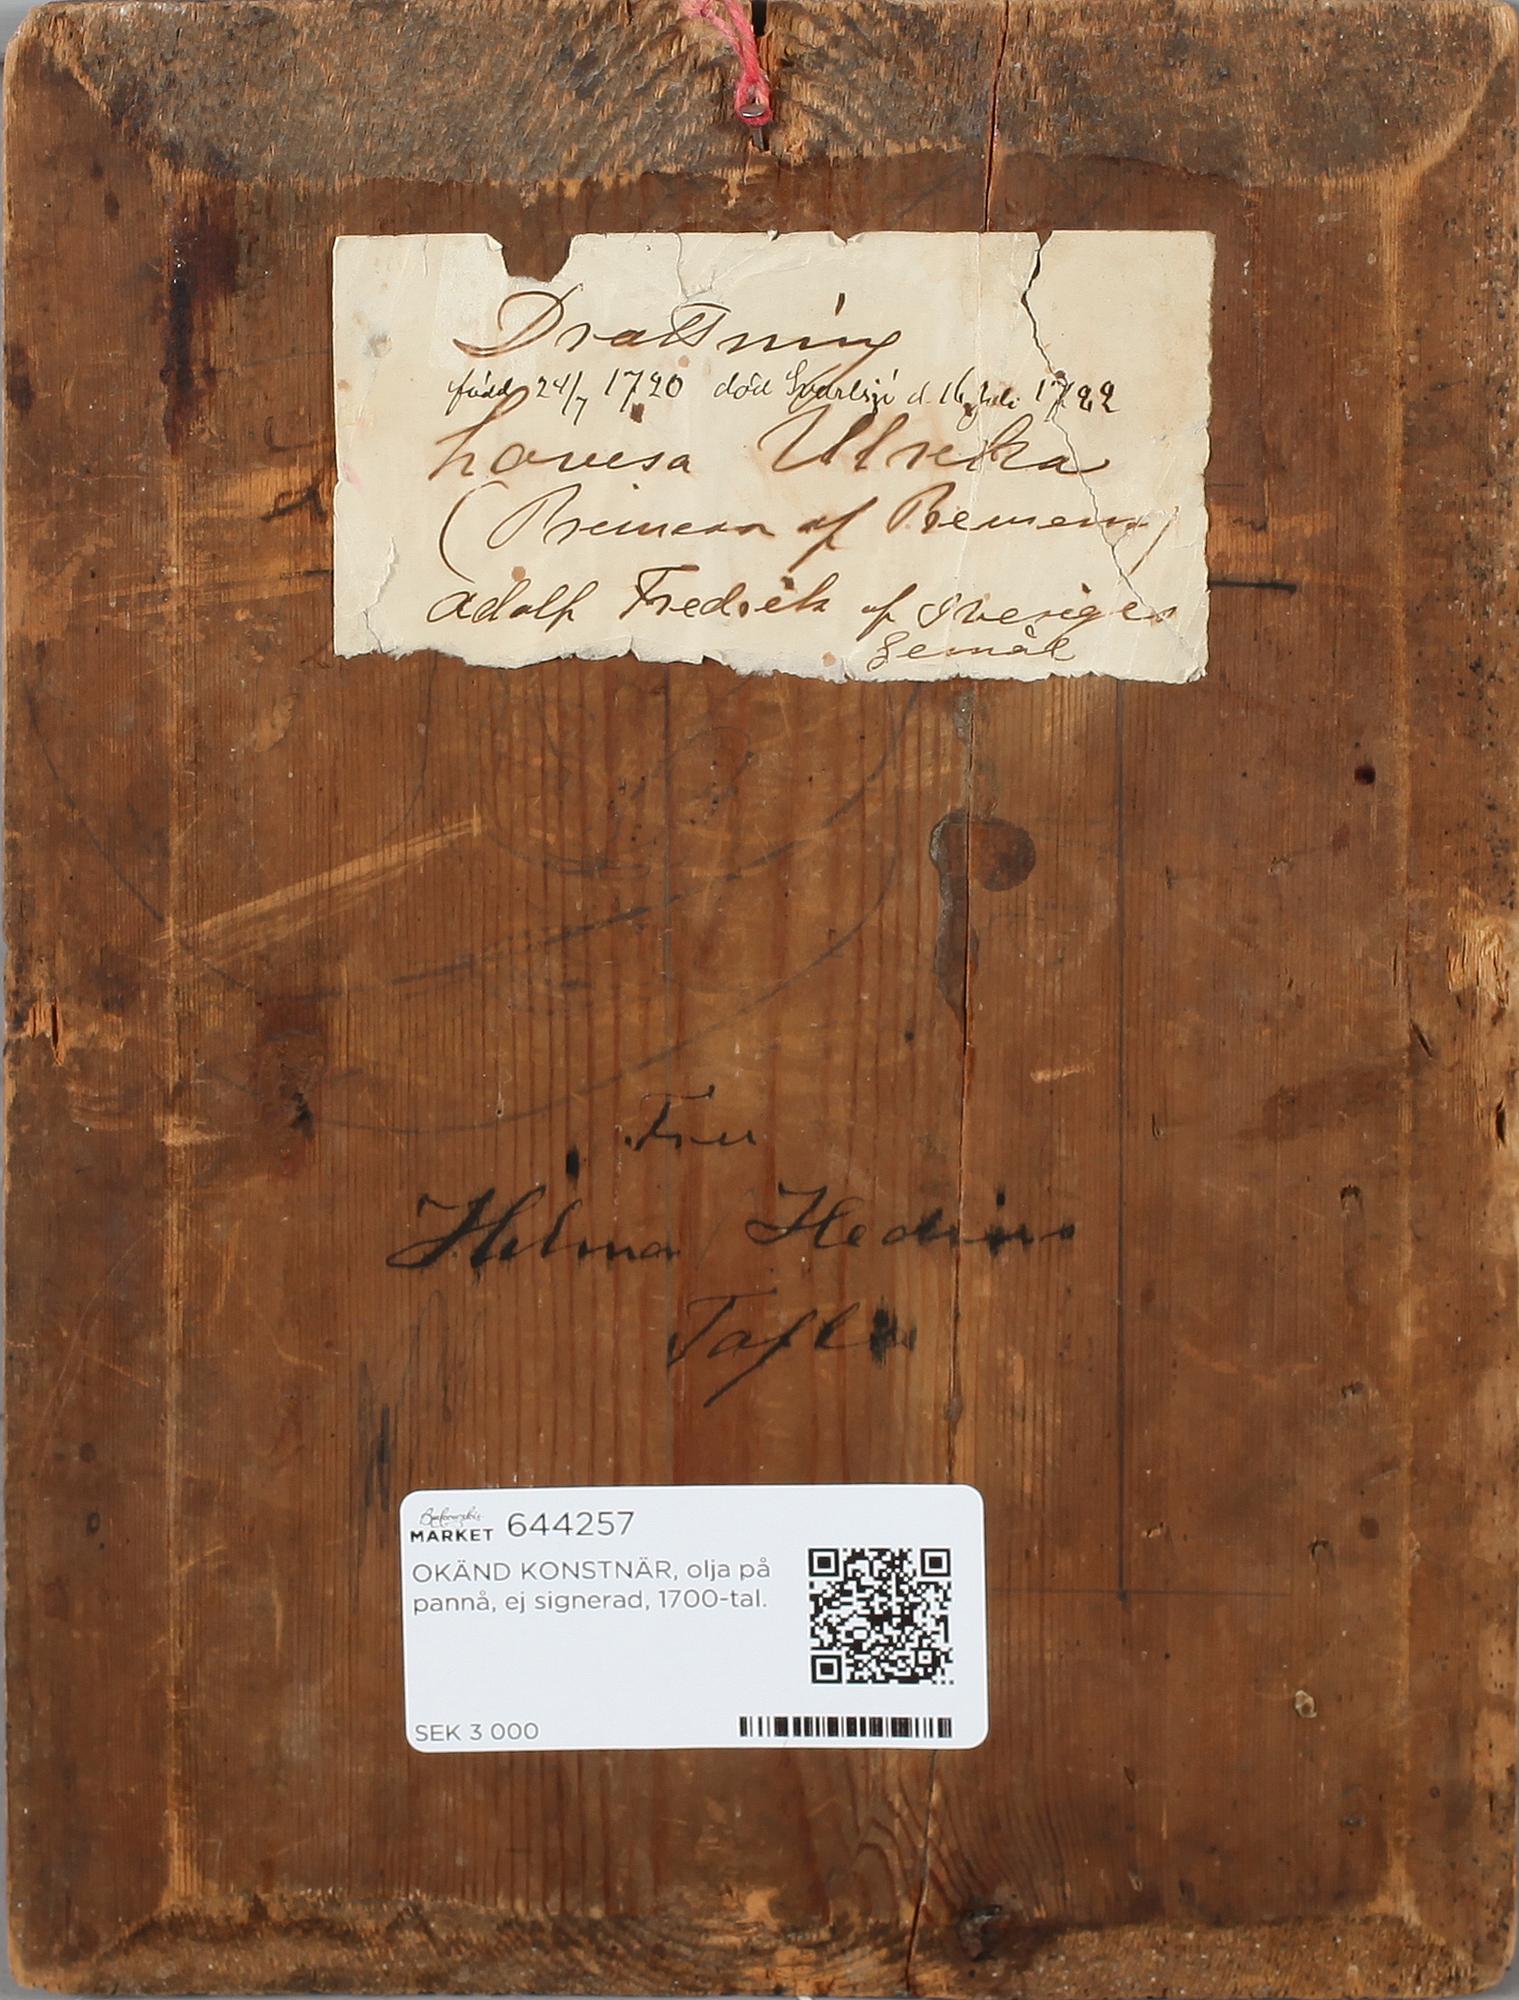 Drottning
född 24/7 1720 död Svartsjö d. 16 Juli 1782
Lovisa Ulrika
(Prinsessa af Preussen)
Adolf Fredrik af Sveriges
Gemål
Fru
Hilma Hedins
Tafla
Bukowskis
MARKET 644257
OKÄND KONSTNÄR, olja på
pannå, ej signerad, 1700-tal.
SEK 3 000